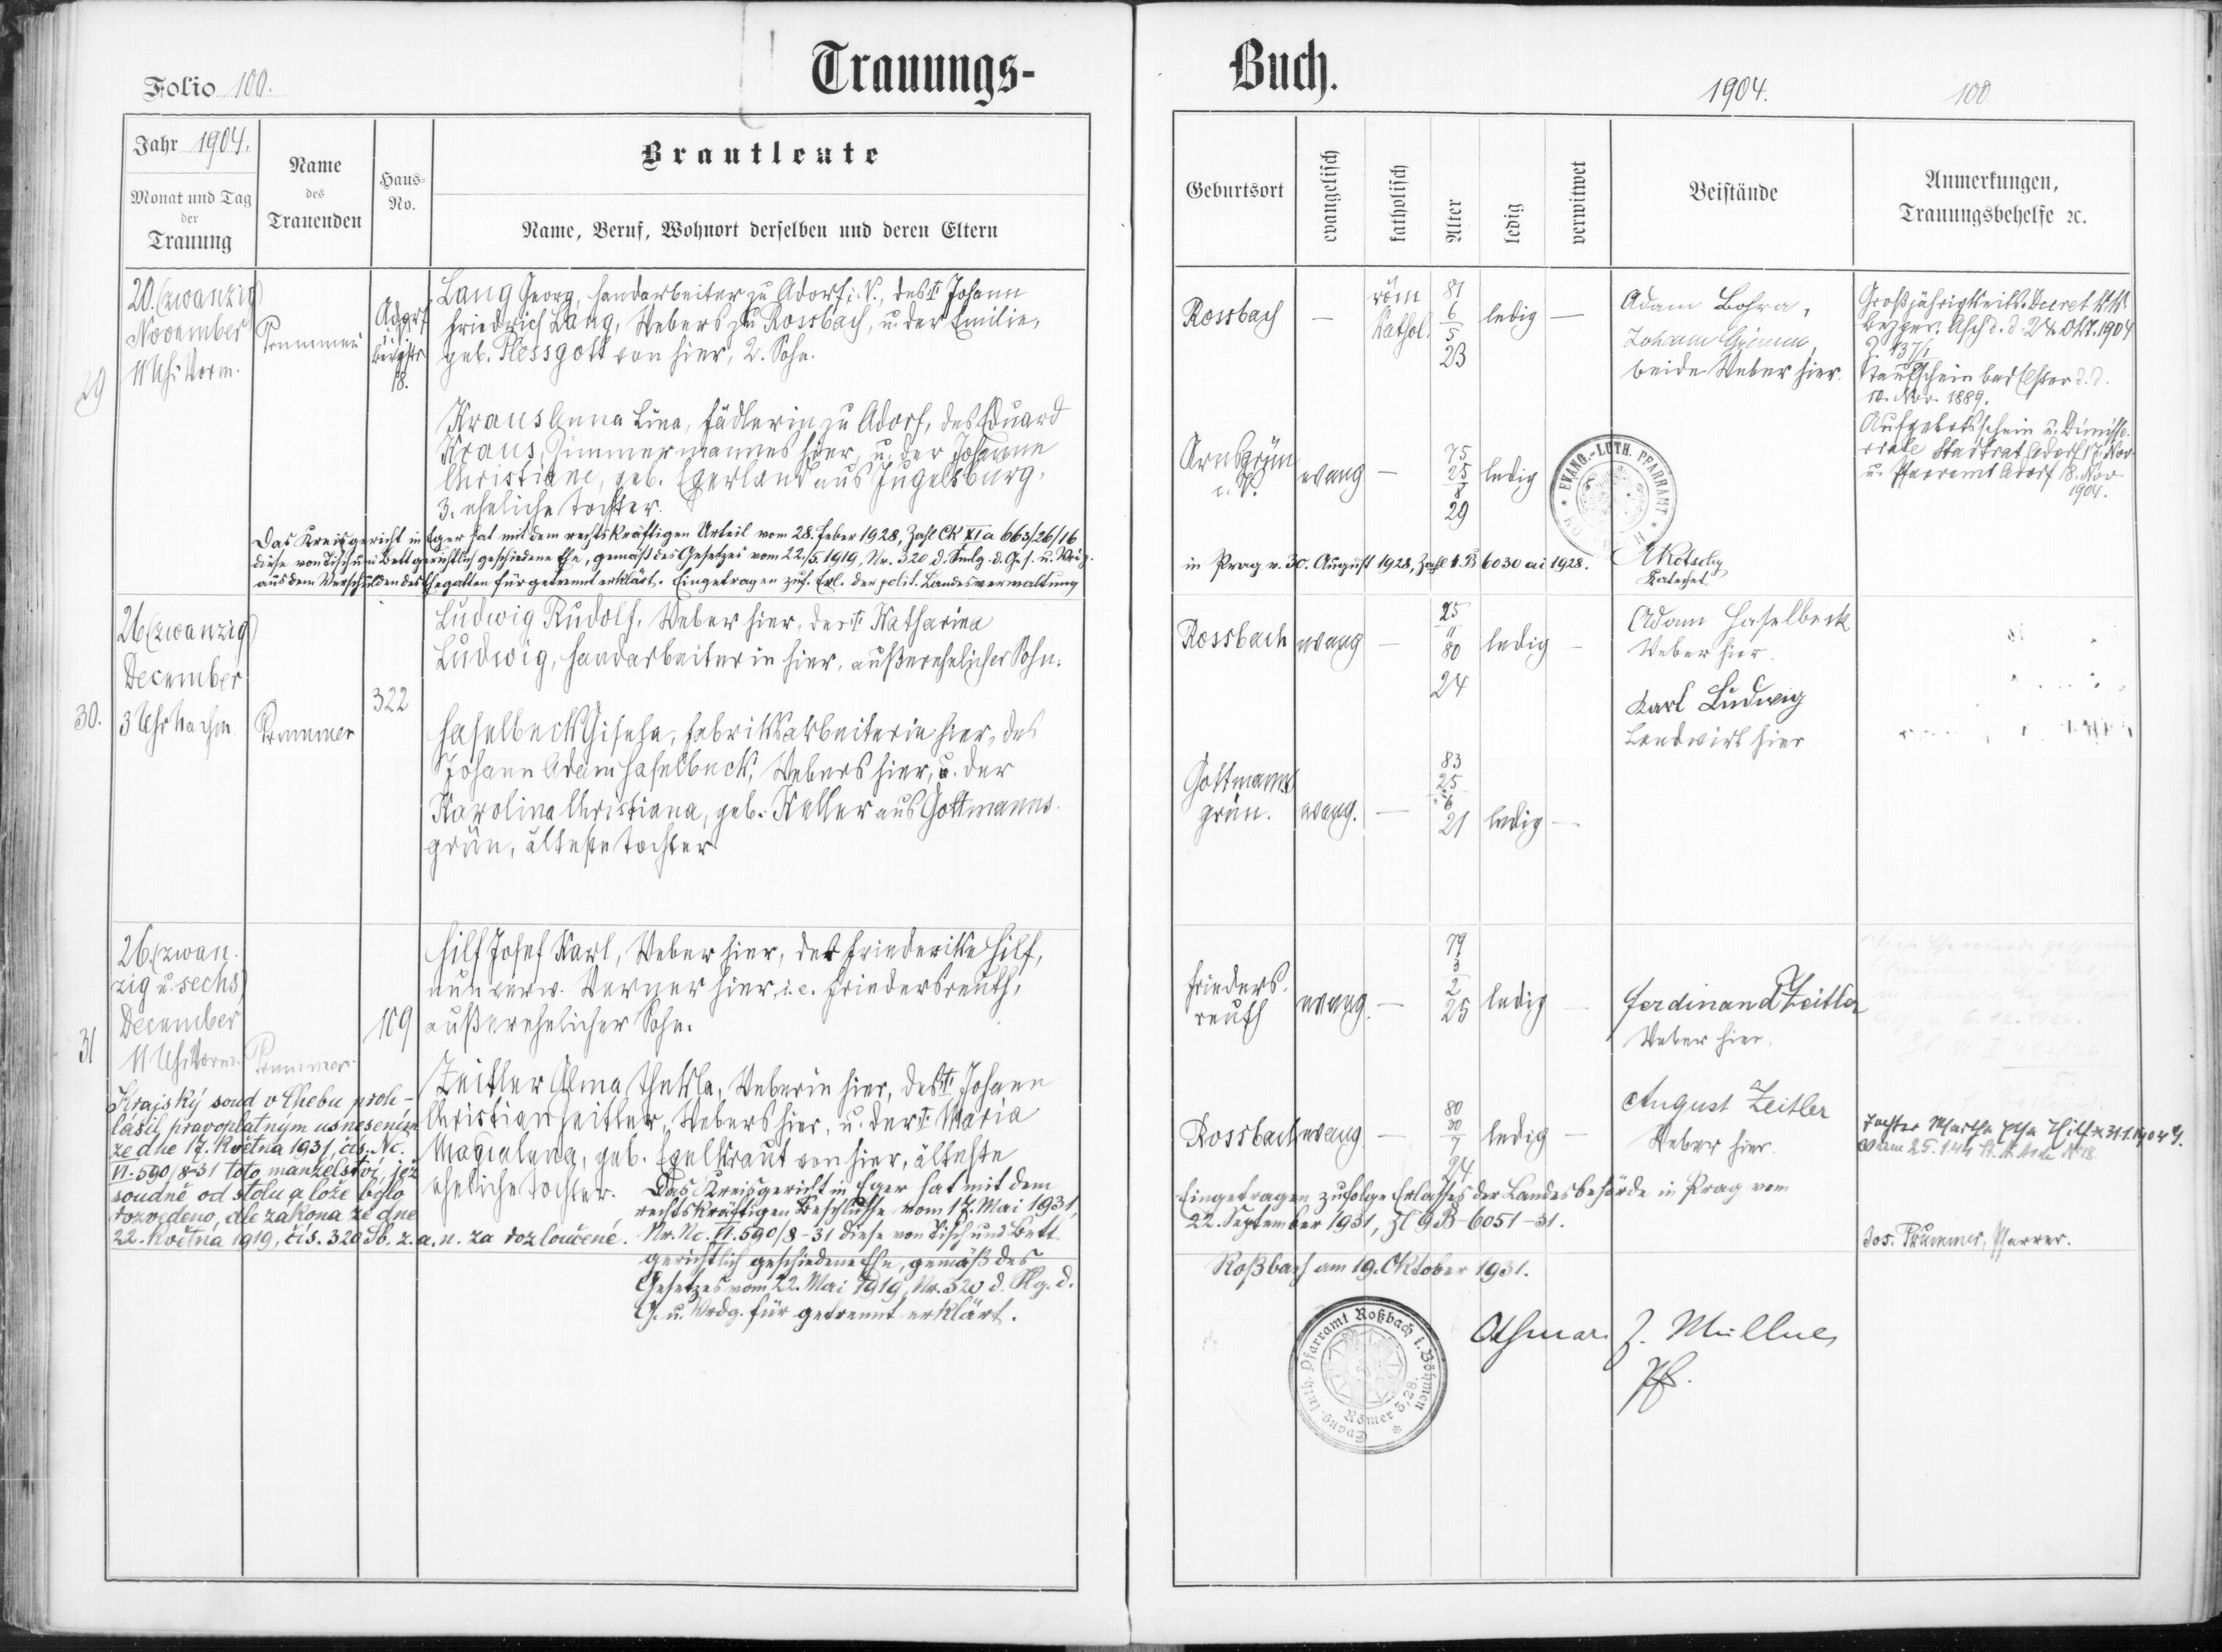 Trauungs-
Folio 100.
Jahr 1904.
Monat und Tag
der
Trauung
Name
des
Trauenden
Haus-
No.
Brautleute
Name, Beruf, Wohnort derselben und deren Eltern
29
20. (zwanzig)
November
11 Uhr Vorm.
Prummer
Adorf
18.
Lang Georg, Handarbeiter zu Adorf i. V., des † Johann
Friedrich Lang, Webers zu Rossbach, u. der Emilie,
geb. Plessgott von hier, 2. Sohn.
Kraus Anna Lina, Fädlerin zu Adorf, des Eduard
Kraus, Zimmermannes hier, u. der Johanne
Christiane, geb. Egerland aus Jugelsburg,
3. eheliche Tochter.
Das Kreisgericht in Eger hat mit dem rechtskräftigen Urteil vom 28. Feber 1928, Zahl Ck XI a 663/26/16
diese von Tisch und Bett gerichtlich geschiedene Ehe, gemäß des Gesetzes vom 22/5. 1919, Nr. 320 d. Smlg. d. G. s. u. Vdg.
aus dem Verschulden des Ehegatten für getrennt erklärt. Eingetragen zuf. Erl. der polit. Landesverwaltung
30.
26 (zwanzig)
December
3 Uhr Nachm
Prummer
322
Ludwig Rudolf, Weber hier, der † Katharina
Ludwig, Handarbeiterin hier, außerehelicher Sohn.
Haselbeck Gisela, Fabriksarbeiterin hier, des
Johann Adam Haselbeck, Webers hier, u. der
Karolina Christiana, geb. Keller aus Gottmanns-
grün, älteste Tochter
31
26. (zwan-
zig u. sechs)
December
11 Uhr Vorm.
Prummer
109
Hilf Josef Karl, Weber hier, der Friederike Hilf,
nun verw. Werner hier, i. e. Friedersreuth,
außerehelicher Sohn.
Zeitler Alma Thekla, Weberin hier, des † Johann
Christian Zeitler, Webers hier, u. der † Maria
Magdalena, geb. Egelkraut von hier, älteste
eheliche Tochter.
Krajský soud v Chebu proh-
lásil pravoplatným usnesením
ze dne 17. Května 1931, čís. Nc.
VI. 590/8-31 toto manželství, jež
soudně od stolu a lože bylo
rozvedeno, dle zákona ze dne
22. Května 1919, čís. 320 Sb. z. a. n. za rozloučené.
Das Kreisgericht in Eger hat mit dem
rechtskräftigen Beschlusse vom 17. Mai 1931,
Nr. Nc. VI. 590/8-31 diese von Tisch und Bett
gerichtlich geschiedene Ehe, gemäß des
Gesetzes vom 22. Mai 1919, Nr. 320 d. Slg. d.
G. u. Vrdg. für getrennt erklärt.
Buch.
1904.
100
Geburtsort
evangelisch
katholisch
Alter
ledig
verwitwet
Beistände
Anmerkungen,
Trauungsbehelfe 2c.
Rossbach
—
röm
Kathol.
81
6
5
23
ledig
—
Adam
Johann
beide Weber hier.
Großjährigkeits-Decret k. k.
Asch d. d. 24. Okt. 1904
Z. 137/1
Taufschein Bad Elster d. d.
10. Nov. 1889.
Aufgebotsschein u. Dimisso-
riale Stadtrat Adorf 17. Nov.
u. Pfarramt Adorf 18. Nov
1904.
Arnsgrün
i. V.
evang
—
75
25
8
29
ledig
EVANG.-LUTH. PFARRAMT
in Prag v. 30. August 1928, Zahl 1 B 6030 ai 1928.
Katechet
Rossbach
evang
—
25
11
80
24
ledig
—
Adam Haselbeck
Weber hier.
Karl Ludwig
Landwirt hier
Gottmanns-
grün.
evang.
—
83
25
6
21
ledig
—
Frieders-
reuth
evang.
—
79
3
2
25
ledig
—
Ferdinand Zeitler
Weber hier.
Rossbach
evang
—
80
30
7
24
ledig
—
August Zeitler
Weber hier.
6. 12. 1926.
Tochter Martha
Eingetragen zufolge Erlasses der Landesbehörde in Prag vom
22. September 1931, Zl 9 B-6051-31.
Jos. Prummer, Pfarrer.
Roßbach am 19. Oktober 1931.
Othmar J. Müllner
Pf.
Evang. luth. Pfarramt Roßbach i. Böhmen
Römer 5,28.